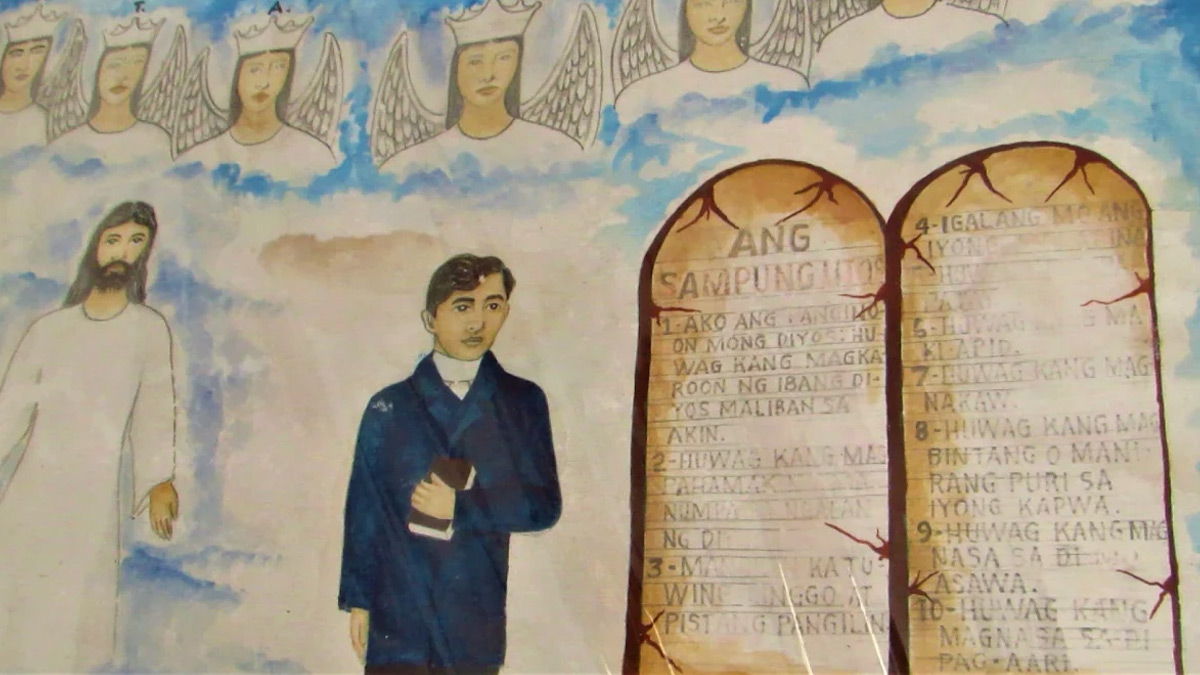 T.
A.
ANG
SAMPUNG UTOS
1-AKO ANG PANGINO-
ON MONG DIYOS: HU-
WAG KANG MAGKA-
ROON NG IBANG DI-
YOS MALIBAN SA
AKIN.
2-HUWAG KANG MAG
PAHAMAK
NG
3-
WING LINGGO AT
PISTANG PANGILIN
4-IGALANG MO ANG
IYONG
5-HUWAG
KI-APID.
7-HUWAG KANG MAG
NAKAW.
8-HUWAG KANG MAG
BINTANG O MANI-
RANG PURI SA
IYONG KAPWA.
9-HUWAG KANG MAG
NASA SA DI
ASAWA.
10-HUWAG KANG
MAGNASA SA DI
PAG-AARI.